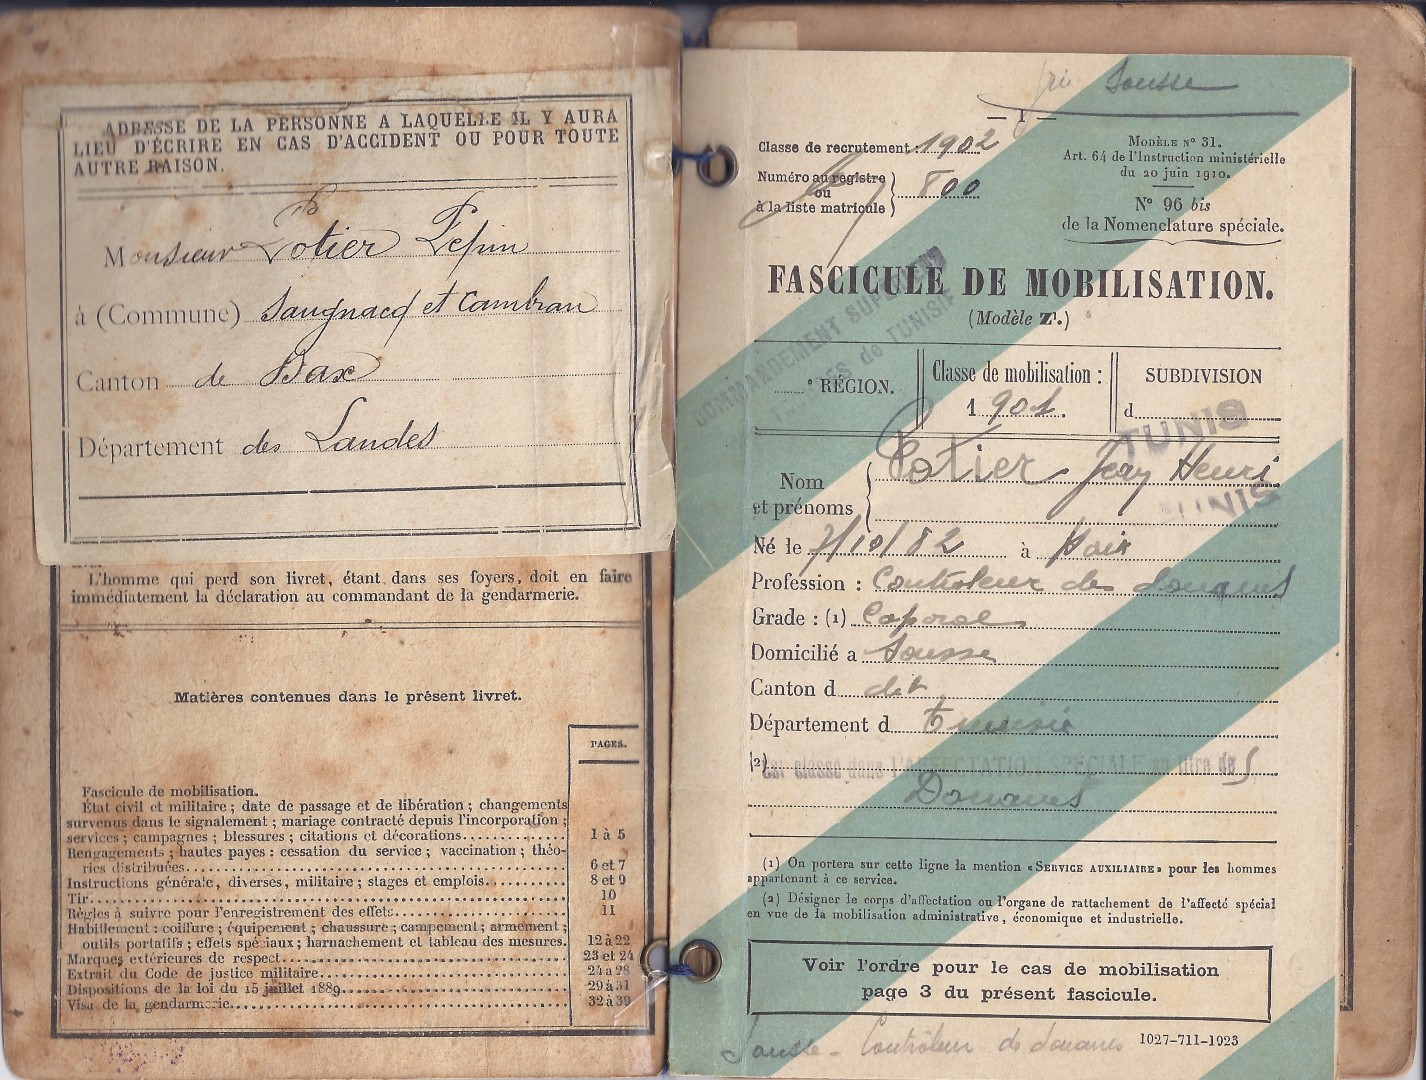 ADRESSE DE LA PERSONNE A LAQUELLE IL Y AURA
LIEU D'ÉCRIRE EN CAS D'ACCIDENT OU POUR TOUTE
AUTRE RAISON.
Monsieur Potier Pepin
à (Commune) Saugnacq et Cambran
Canton de Dax
Département des Landes
L'homme qui perd son livret, étant dans ses foyers, doit en faire
immédiatement la déclaration au commandant de la gendarmerie.
Matières contenues dans le présent livret.
PAGES.
Fascicule de mobilisation.
État civil et militaire ; date de passage et de libération ; changements
survenus dans le signalement ; mariage contracté depuis l'incorporation ;
services ; campagnes ; blessures ; citations et décorations 1 à 5
Rengagements ; hautes payes : cessation du service ; vaccination ; théo-
ries distribuées 6 et 7
Instructions générale, diverses, militaire ; stages et emplois 8 et 9
Tir 10
Règles à suivre pour l'enregistrement des effets 11
Habillement : coiffure ; équipement ; chaussure ; campement ; armement ;
outils portatifs ; effets spéciaux ; harnachement et tableau des mesures. 12 à 22
Marques extérieures de respect 23 et 24
Extrait du Code de justice militaire 24 à 28
Dispositions de la loi du 15 juillet 1889 29 à 31
Visa de la gendarmerie 32 à 39
Sousse
— 1 —
Classe de recrutement : 1902
Numéro au registre
ou
à la liste matricule } 800
MODÈLE N° 31.
Art. 64 de l'Instruction ministérielle
du 20 juin 1910.
N° 96 bis
de la Nomenclature spéciale.
FASCICULE DE MOBILISATION.
(Modèle Z¹.)
COMMANDEMENT SUPÉRIEUR
de TUNISIE
e RÉGION.
Classe de mobilisation :
1901.
SUBDIVISION
d
TUNIS
TUNIS
Nom
et prénoms } Potier Jean Henri
Né le 7/10/82 à
Profession : Contrôleur des douanes
Grade : (1) Caporal
Domicilié a Sousse
Canton d dit
Département d Tunisie
(2) Est classé dans l'AFFECTATION SPÉCIALE au titre des
Douanes
(1) On portera sur cette ligne la mention « SERVICE AUXILIAIRE » pour les hommes
appartenant à ce service.
(2) Désigner le corps d'affectation ou l'organe de rattachement de l'affecté spécial
en vue de la mobilisation administrative, économique et industrielle.
Voir l'ordre pour le cas de mobilisation
page 3 du présent fascicule.
Sousse - Contrôleur des douanes
1027-711-1923